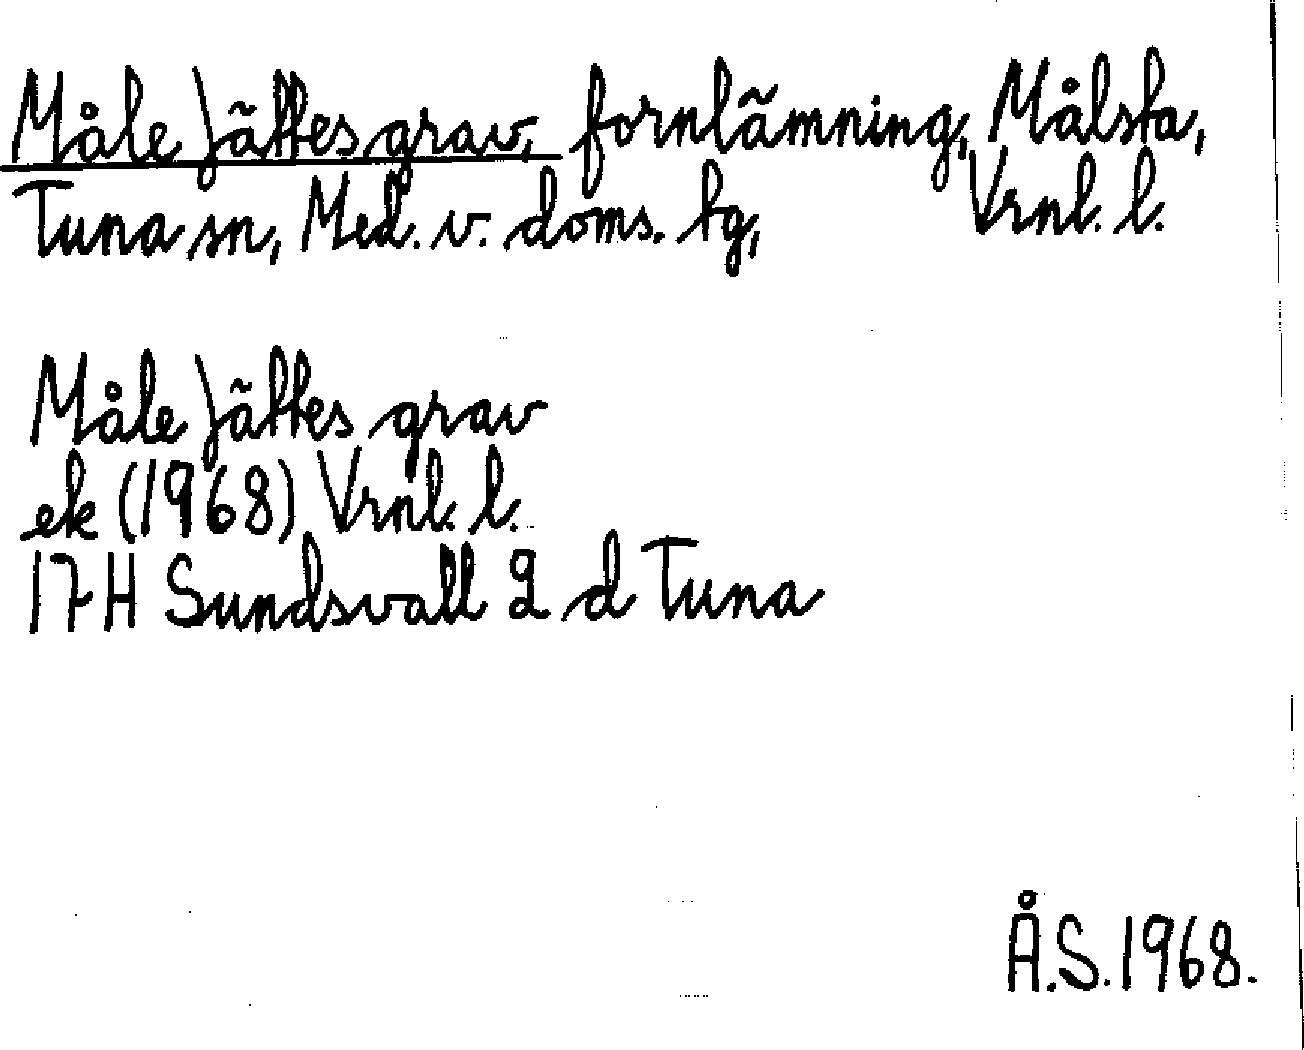 Måle Jättes grav, fornlämning, Målsta,
Tuna sn, Med. v. doms. tg, Vrnl. l.
Måle Jättes grav
ek (1968) Vrnl. l.
17H Sundsvall 2 d Tuna
Å.S. 1968.